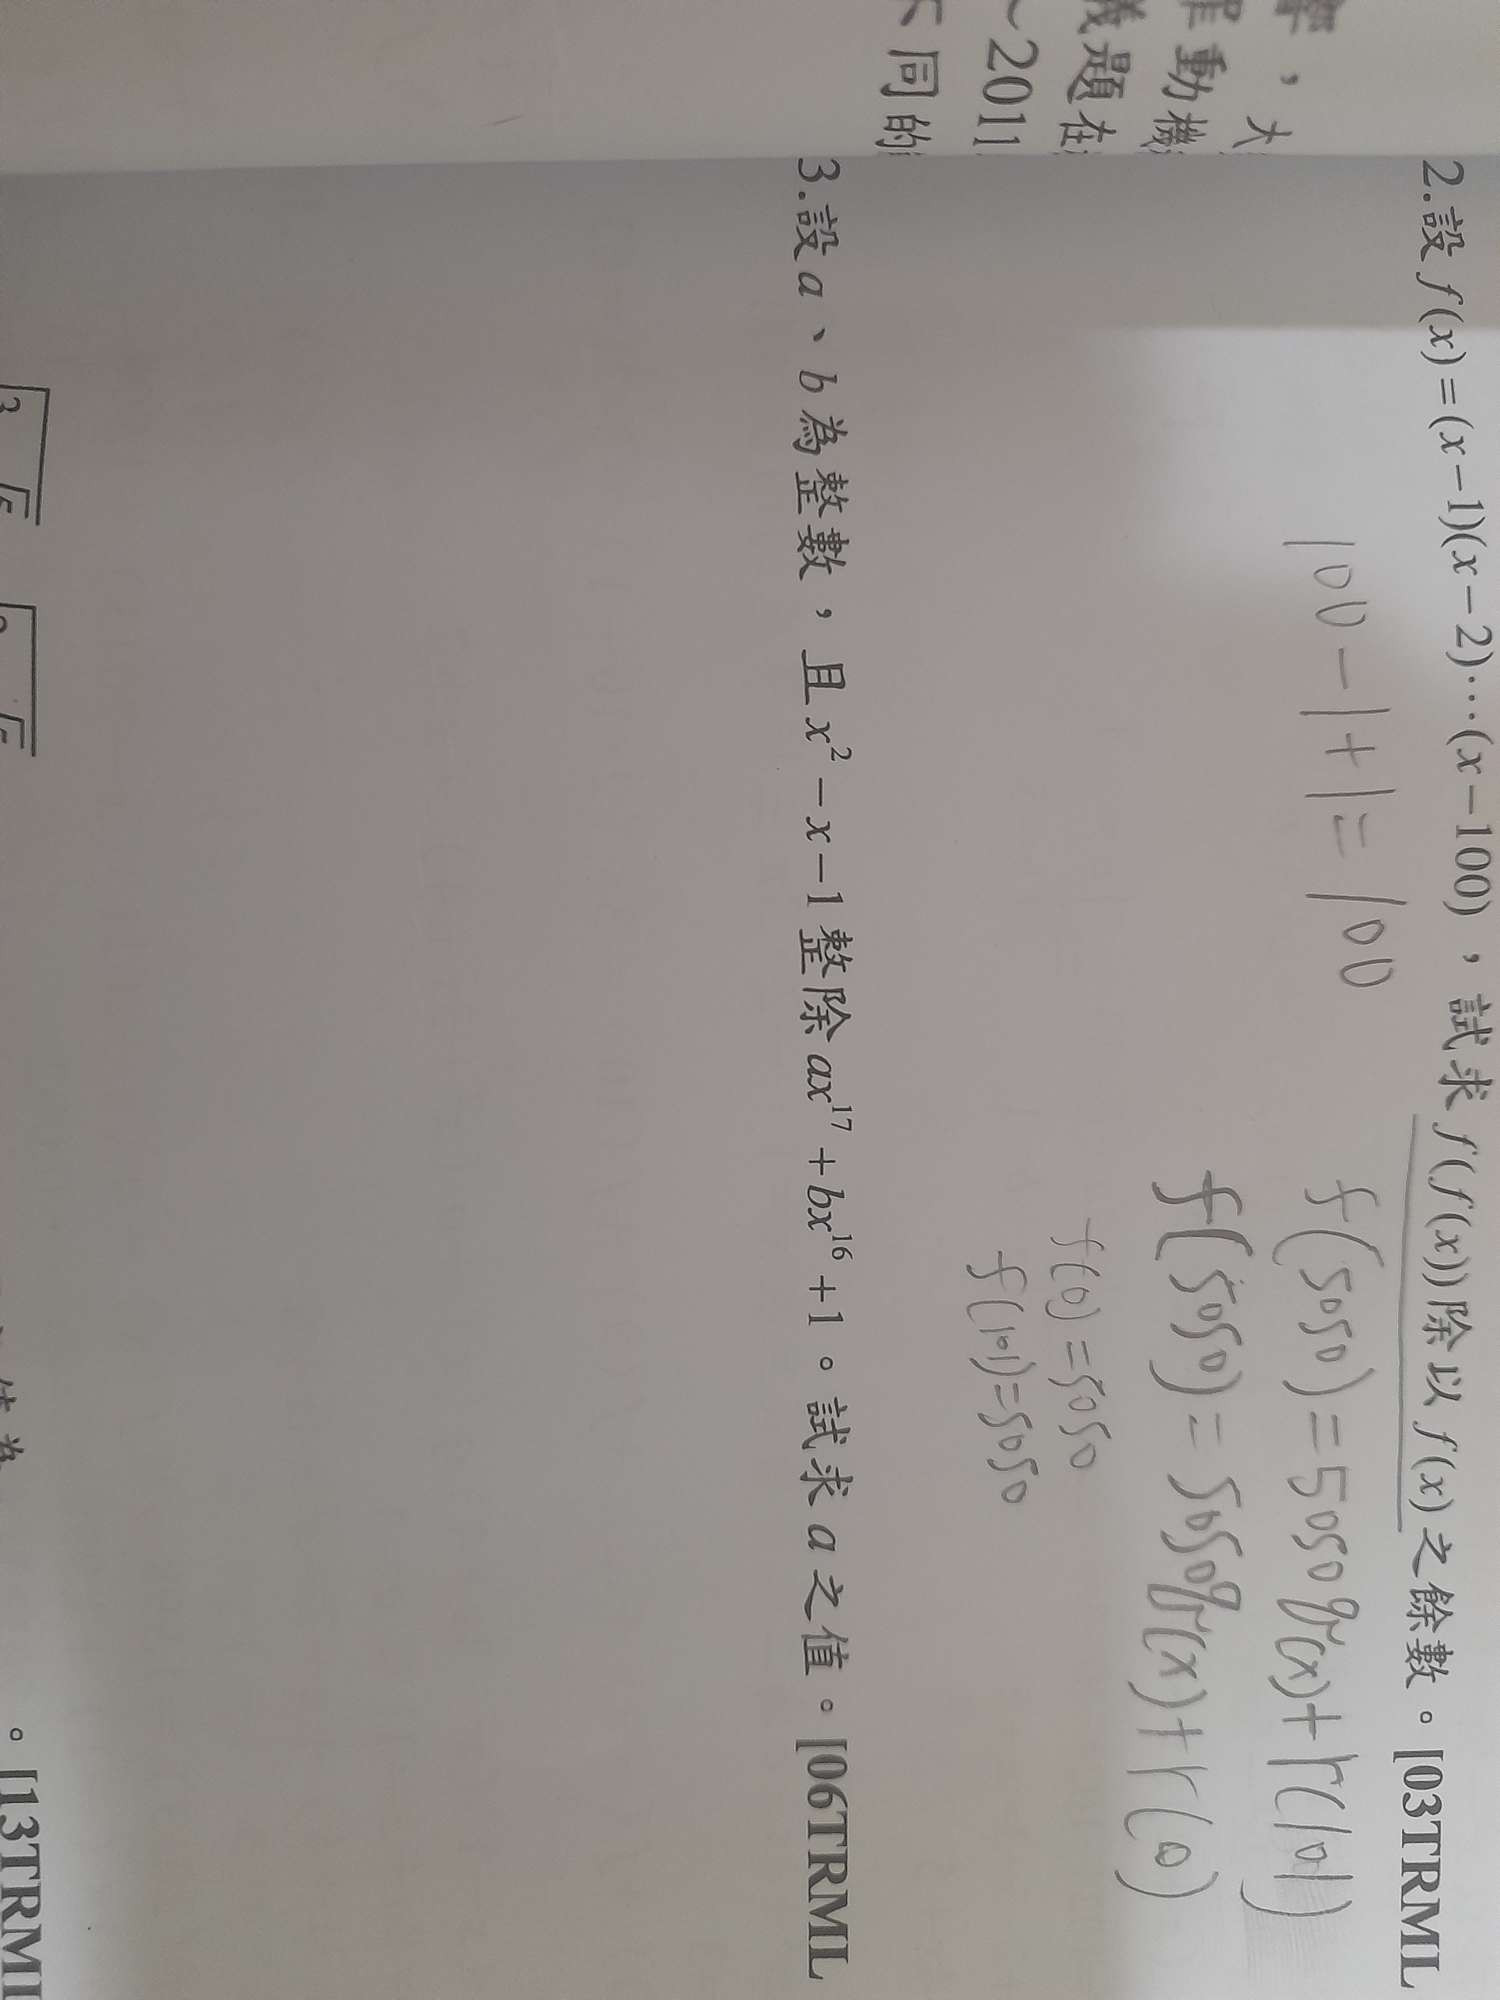 2.設 f(x)=(x-1)(x-2)…(x-100)，試求 f(f(x))除以 f(x)之餘數。[03TRML
100-1+1=100
f(5050)=5050q(x)+r(101)
f(5050)=5050q(x)+r(0)
f(0)=5050
f(101)=5050
3.設 a、b 為整數，且 x²-x-1 整除 ax¹⁷+bx¹⁶+1。試求 a 之值。[06TRML
。[13TRML
，大
動機
義題在
~2011
不同的